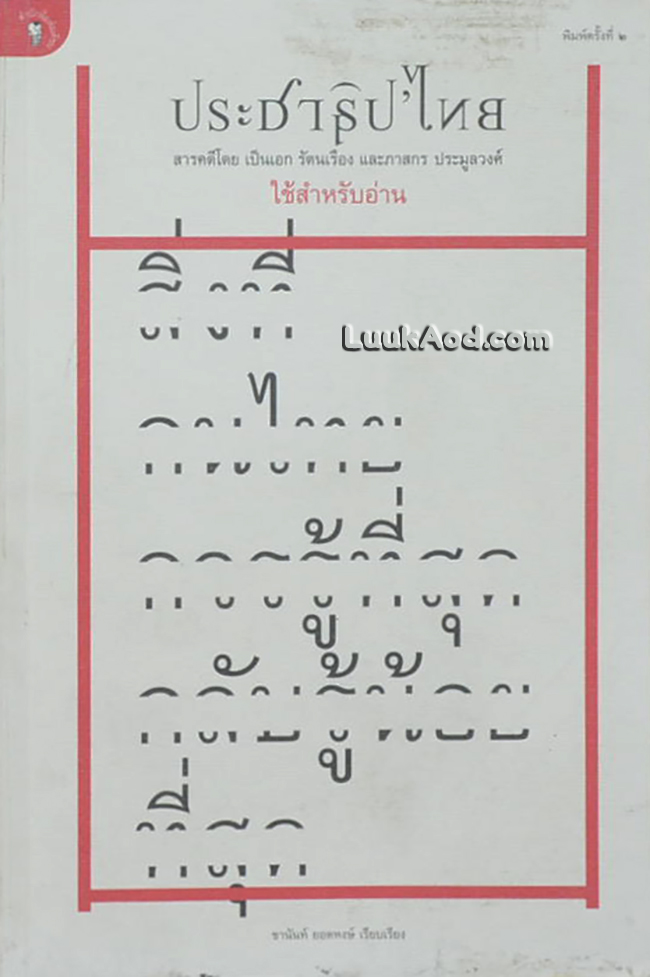 พิมพ์ครั้งที่ ๒
ประชาธิป'ไทย
สารคดีโดย เป็นเอก รัตนเรือง และภาสกร ประมูลวงศ์
ใช้สำหรับอ่าน
สิ่งที่
LuukAod.com
คนไทย
ควรรู้ที่สุด
กลับรู้น้อย
ที่สุด
ชานันท์ ยอดหงษ์ เรียบเรียง